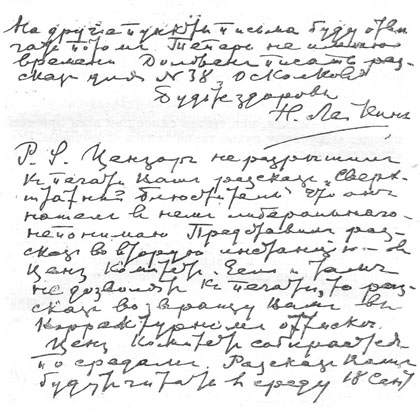 На другие пункты письма буду отве
чать потом. Теперь не имею
времени. Должен писать раз-
сказ для № 38, Осколков
Будьте здоровы
Н. Лейкин
P. S. Цензоръ не разрѣшилъ
къ печати Вашъ разсказъ „Сверх-
штатный блюститель". Что онъ
нашелъ въ немъ либеральнаго –
не понимаю. Представилъ раз-
сказъ во вторую инстанцію – въ
Ценз. Комитетъ. Если и тамъ
не дозволятъ къ печати, то раз-
сказъ возвращу Вамъ въ
корректурномъ оттискѣ.
Ценз. Комитетъ собирается
по средамъ. Разсказъ Вашъ
будутъ читать въ среду 18 Сент